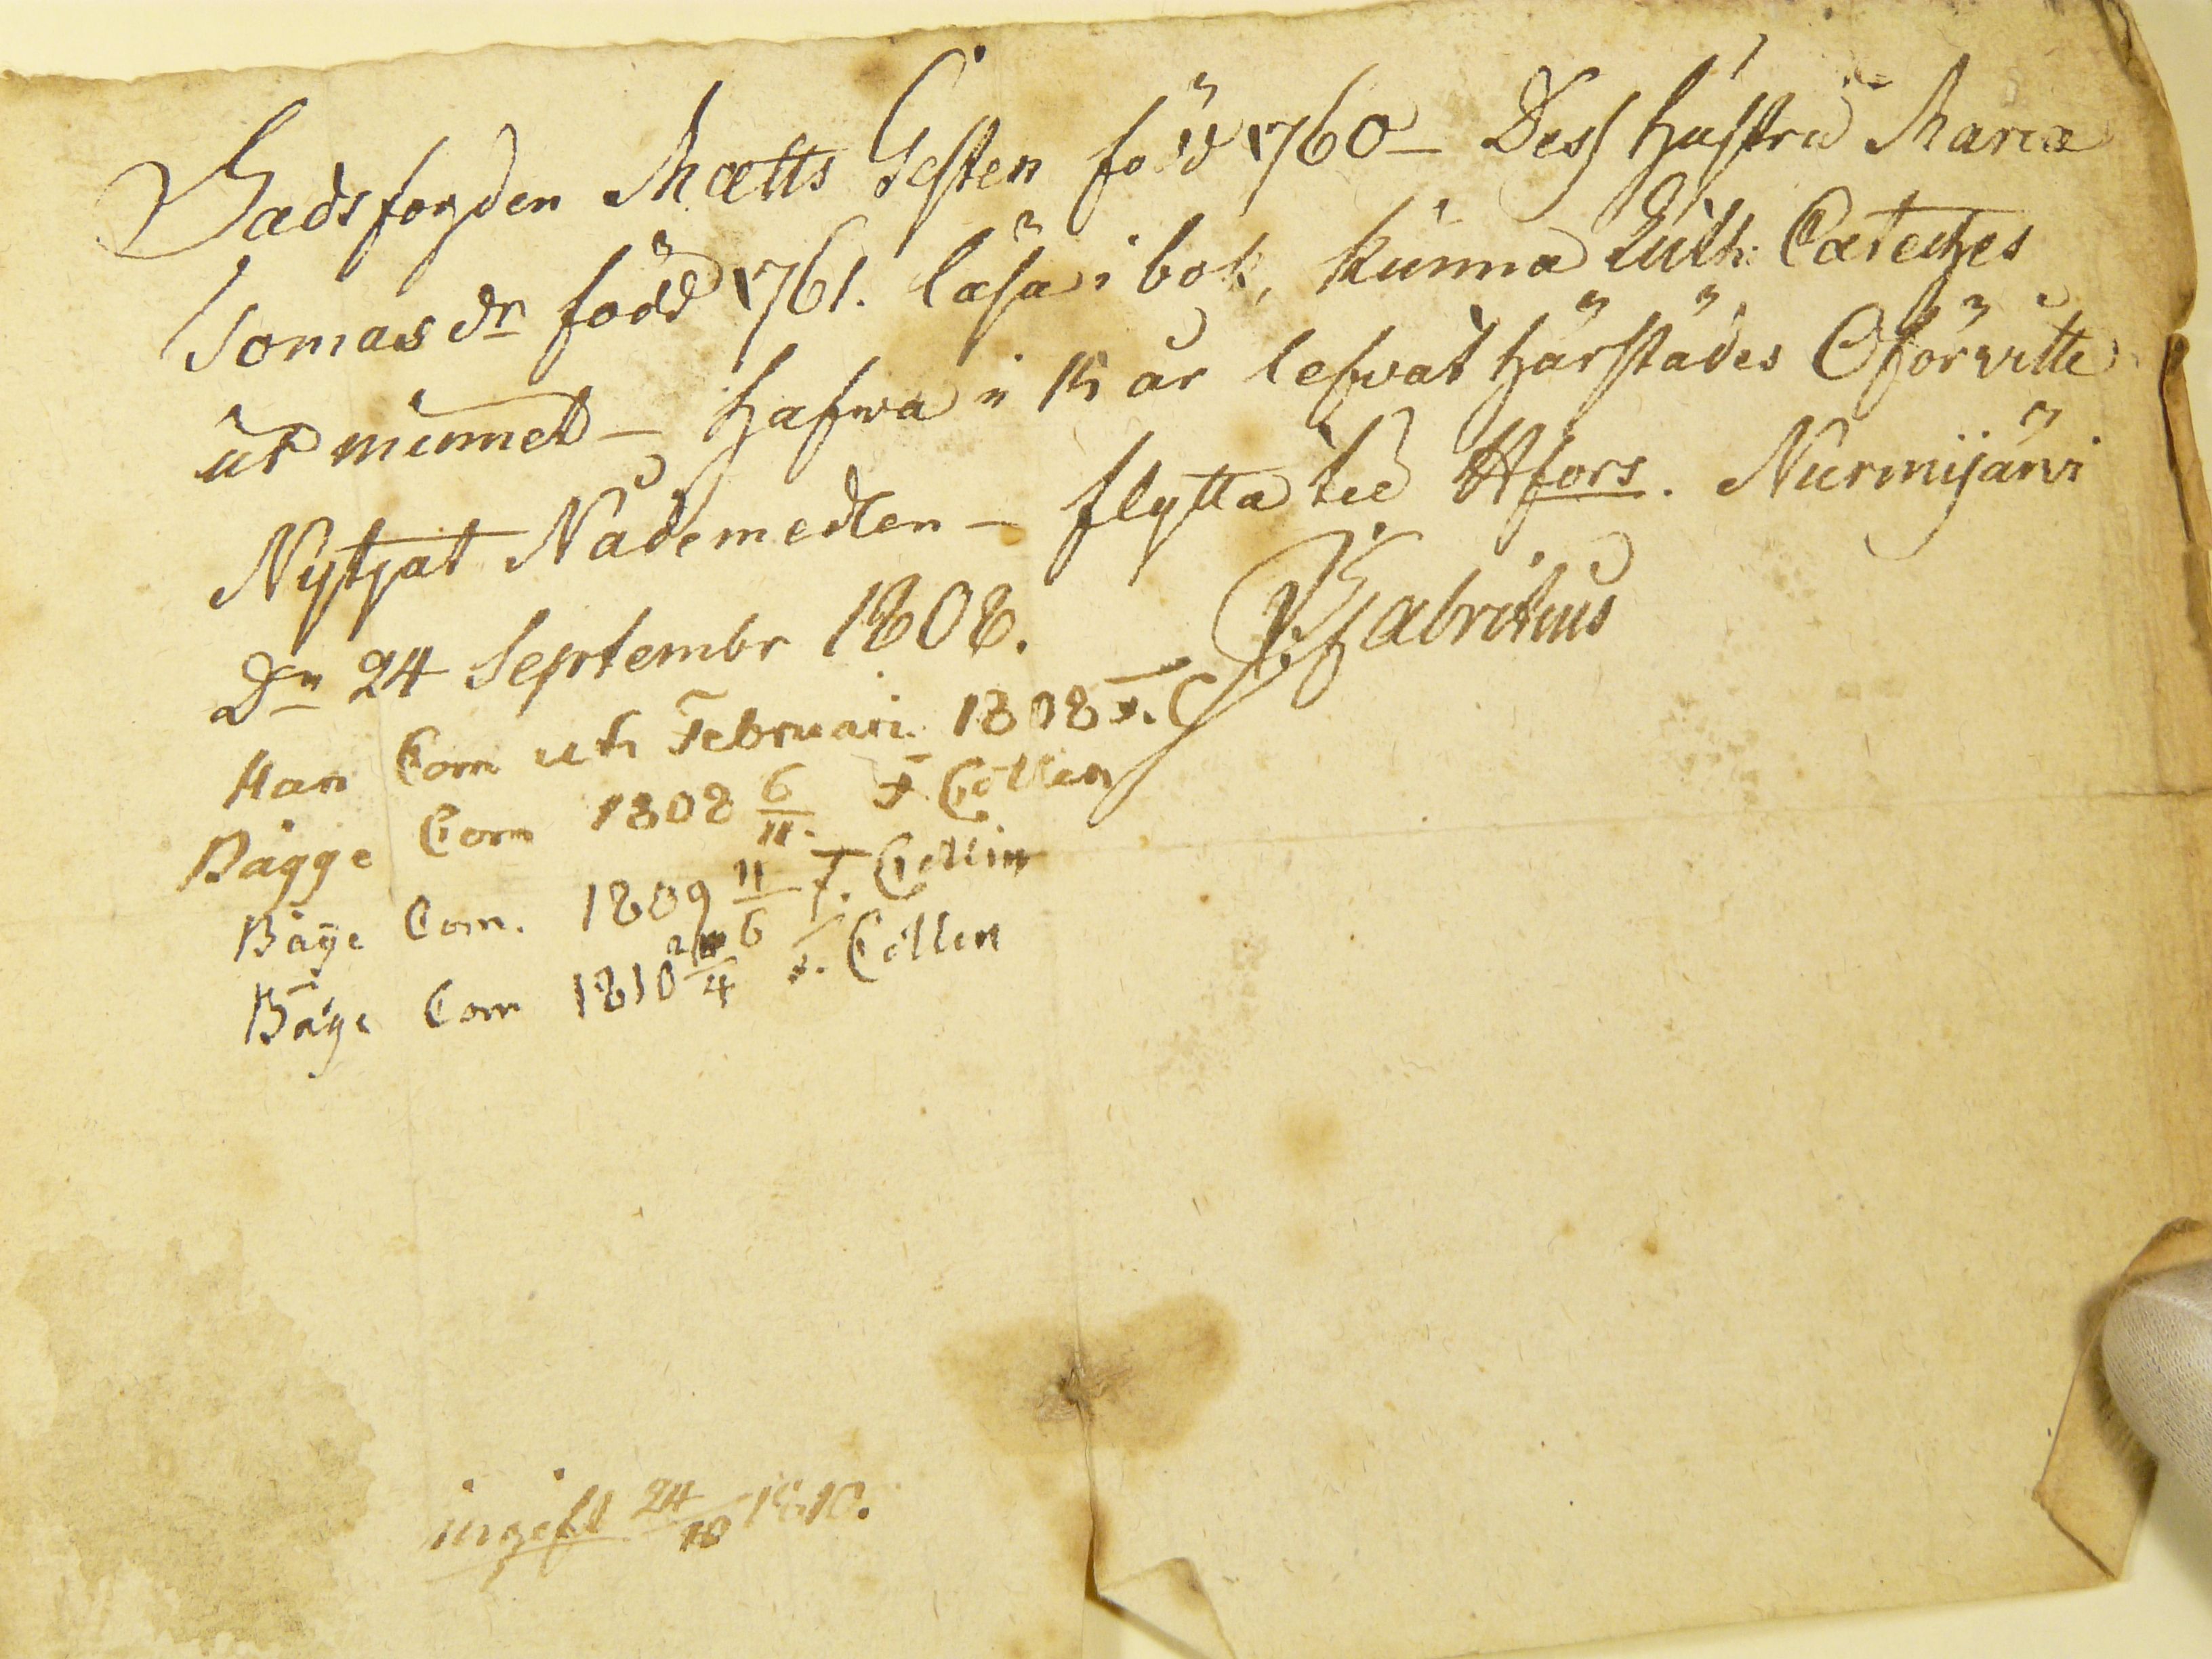 Matts Gesten född 1760 – Dess hustru Maria
Tomas dr född 1761. läsa i bok, kunna Luth: Cateches
ur minnet – hafwa i år lefwat härstädes Oförvitte
Nytjat Nådemedlen – flytta till Hfors. Nurmijärvi
Dn 24 Septembr 1808. Fabritius
Han Com uti Februari 1808 F. C
Bägge Com 1808 6/11. F Collin
Bäge Com. 1809 11/6 F. Collin
Bäge Com 1810 /4 F. Collin
ingift 24/10 1810.